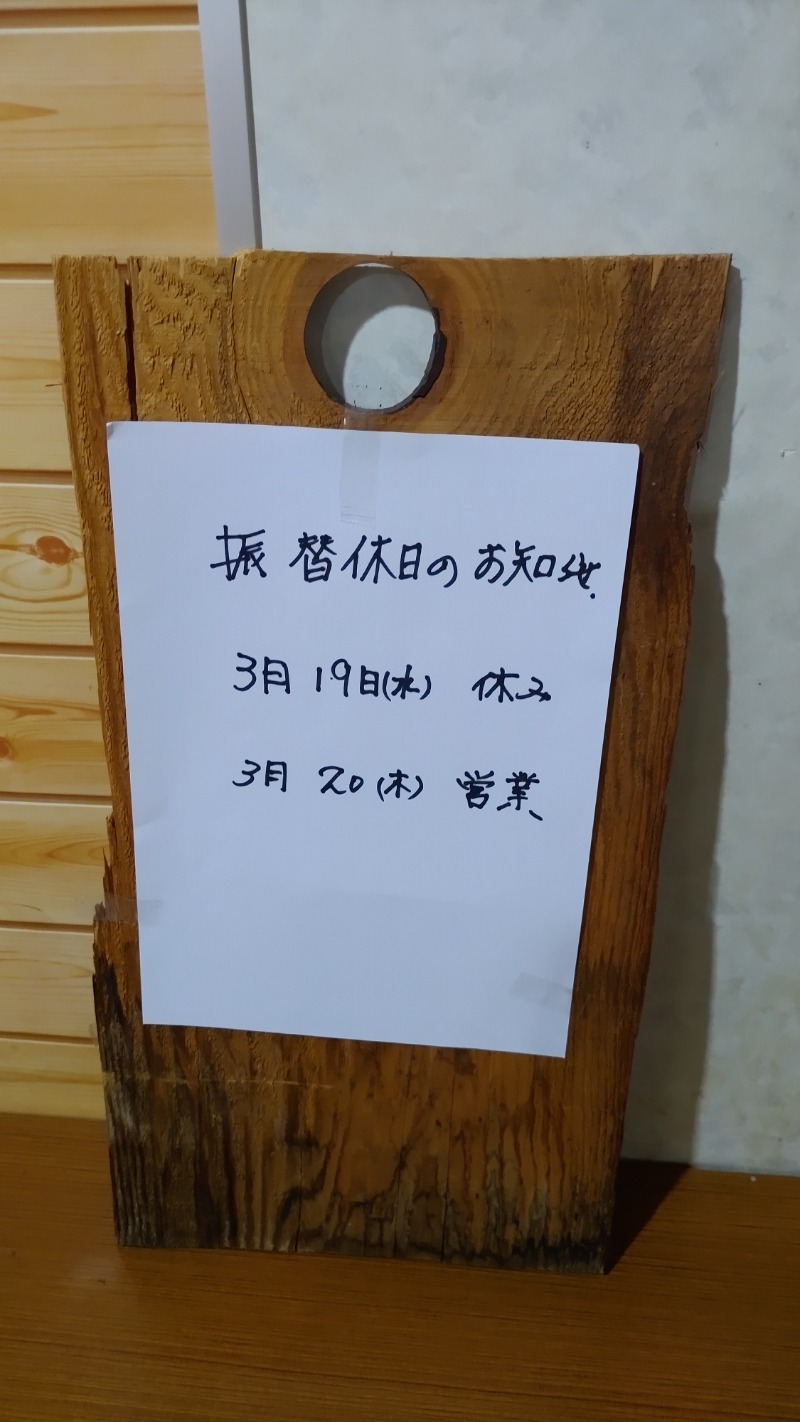 振替休日のお知せ.
3月19日(水) 休み
3月20(木) 営業